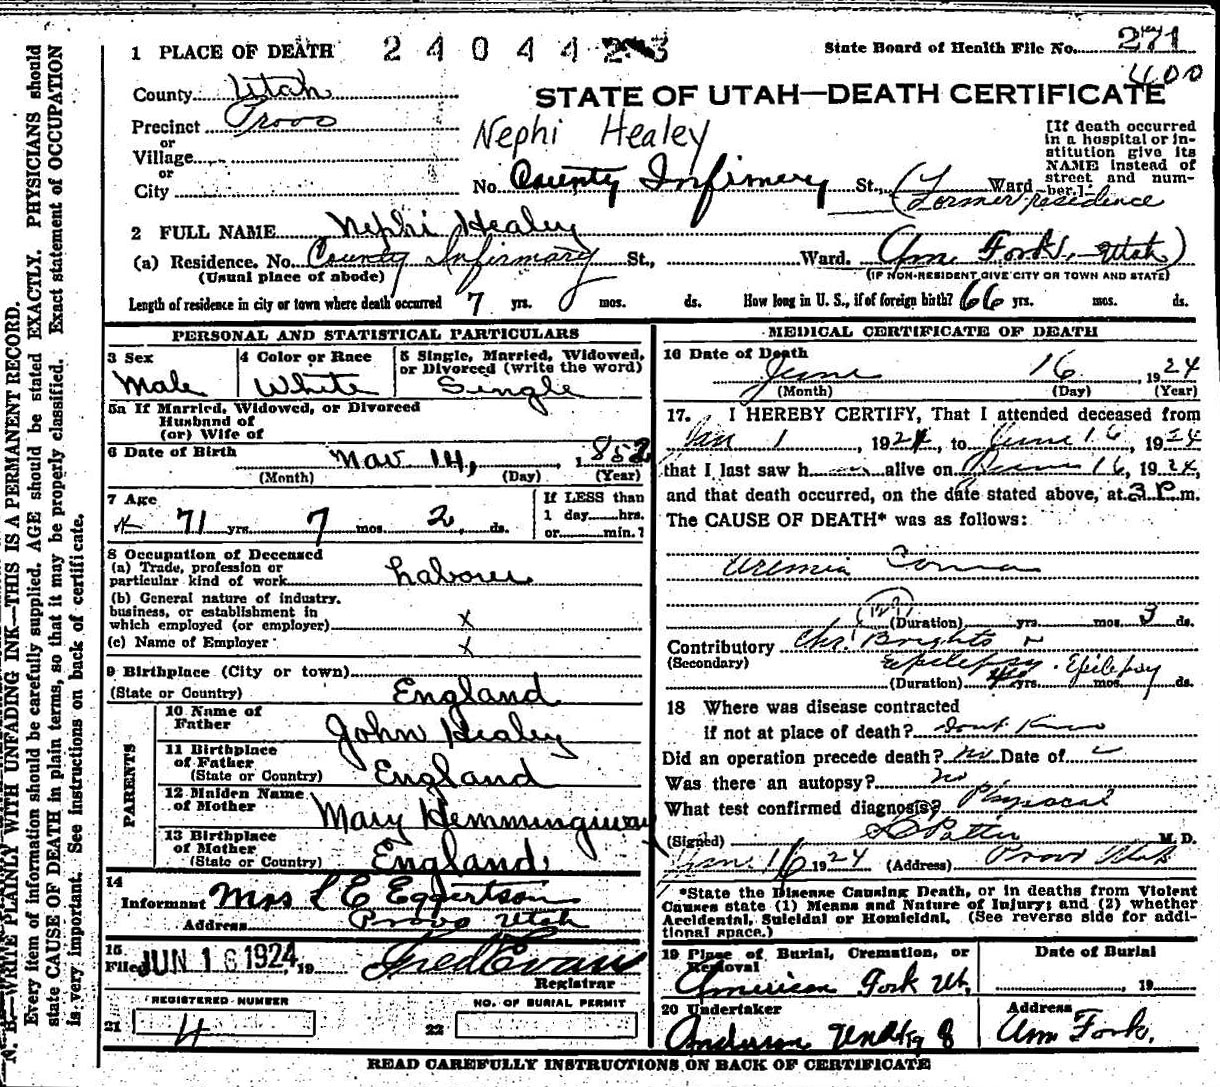 1 PLACE OF DEATH 2404423 State Board of Health File No. 271
400
County Utah
STATE OF UTAH—DEATH CERTIFICATE
Precinct Provo
or
Village
or
City
Nephi Healey
No. County Infirmery St., Ward
[If death occurred
in a hospital or in-
stitution give its
NAME instead of
street and num-
ber.]
(Former residence
2 FULL NAME Nephi Healey
Am Fork, Utah)
(a) Residence. No. County Infirmary St., Ward.
(Usual place of abode) (IF NON-RESIDENT GIVE CITY OR TOWN AND STATE)
Length of residence in city or town where death occurred 7 yrs. mos. ds. How long in U. S., if of foreign birth? 66 yrs. mos. ds.
PERSONAL AND STATISTICAL PARTICULARS
3 Sex Male
4 Color or Race White
5 Single, Married, Widowed,
or Divorced (write the word)
Single
5a If Married, Widowed, or Divorced
Husband of
(or) Wife of
6 Date of Birth Nov 14, 1852
(Month) (Day) (Year)
7 Age 71 yrs. 7 mos. 2 ds.
If LESS than
1 day hrs.
or min.?
8 Occupation of Deceased
(a) Trade, profession or
particular kind of work Laborer
(b) General nature of industry,
business, or establishment in
which employed (or employer) x
(c) Name of Employer x
9 Birthplace (City or town)
(State or Country) England
PARENTS
10 Name of
Father John Healey
11 Birthplace
of Father
(State or Country) England
12 Maiden Name
of Mother Mary Hemmingway
13 Birthplace
of Mother
(State or Country) England
14
Informant Mrs L E Eggertson
Address Provo Utah
15
Filed JUN 16 1924, 19 Fred Evans
Registrar
REGISTERED NUMBER NO. OF BURIAL PERMIT
21 4 22
MEDICAL CERTIFICATE OF DEATH
16 Date of Death
June 16 1924
(Month) (Day) (Year)
17. I HEREBY CERTIFY, That I attended deceased from
Jan 1, 1924, to June 16, 1924
that I last saw h alive on June 16, 1924,
and that death occurred, on the date stated above, at 3 P. m.
The CAUSE OF DEATH* was as follows:
Uremia Coma
(Duration) yrs. mos. 3 ds.
Contributory Chr. Brights
(Secondary) Epilepsy. Epilepsy
(Duration) yrs. mos. ds.
18 Where was disease contracted
if not at place of death? Dont Know
Did an operation precede death? No Date of
Was there an autopsy? No
What test confirmed diagnosis? Physical
(Signed) M. D.
Jan. 16 1924 (Address) Provo Utah
*State the Disease Causing Death, or in deaths from Violent
Causes state (1) Means and Nature of Injury; and (2) whether
Accidental, Suicidal or Homicidal. (See reverse side for addi-
tional space.)
19 Place of Burial, Cremation, or
Removal
American Fork Ut.
Date of Burial
, 19
20 Undertaker
Anderson
Address
Am Fork.
READ CAREFULLY INSTRUCTIONS ON BACK OF CERTIFICATE
N. B.—WRITE PLAINLY WITH UNFADING INK—THIS IS A PERMANENT RECORD.
Every item of information should be carefully supplied. AGE should be stated EXACTLY. PHYSICIANS should
state CAUSE OF DEATH in plain terms, so that it may be properly classified. Exact statement of OCCUPATION
is very important. See instructions on back of certificate.